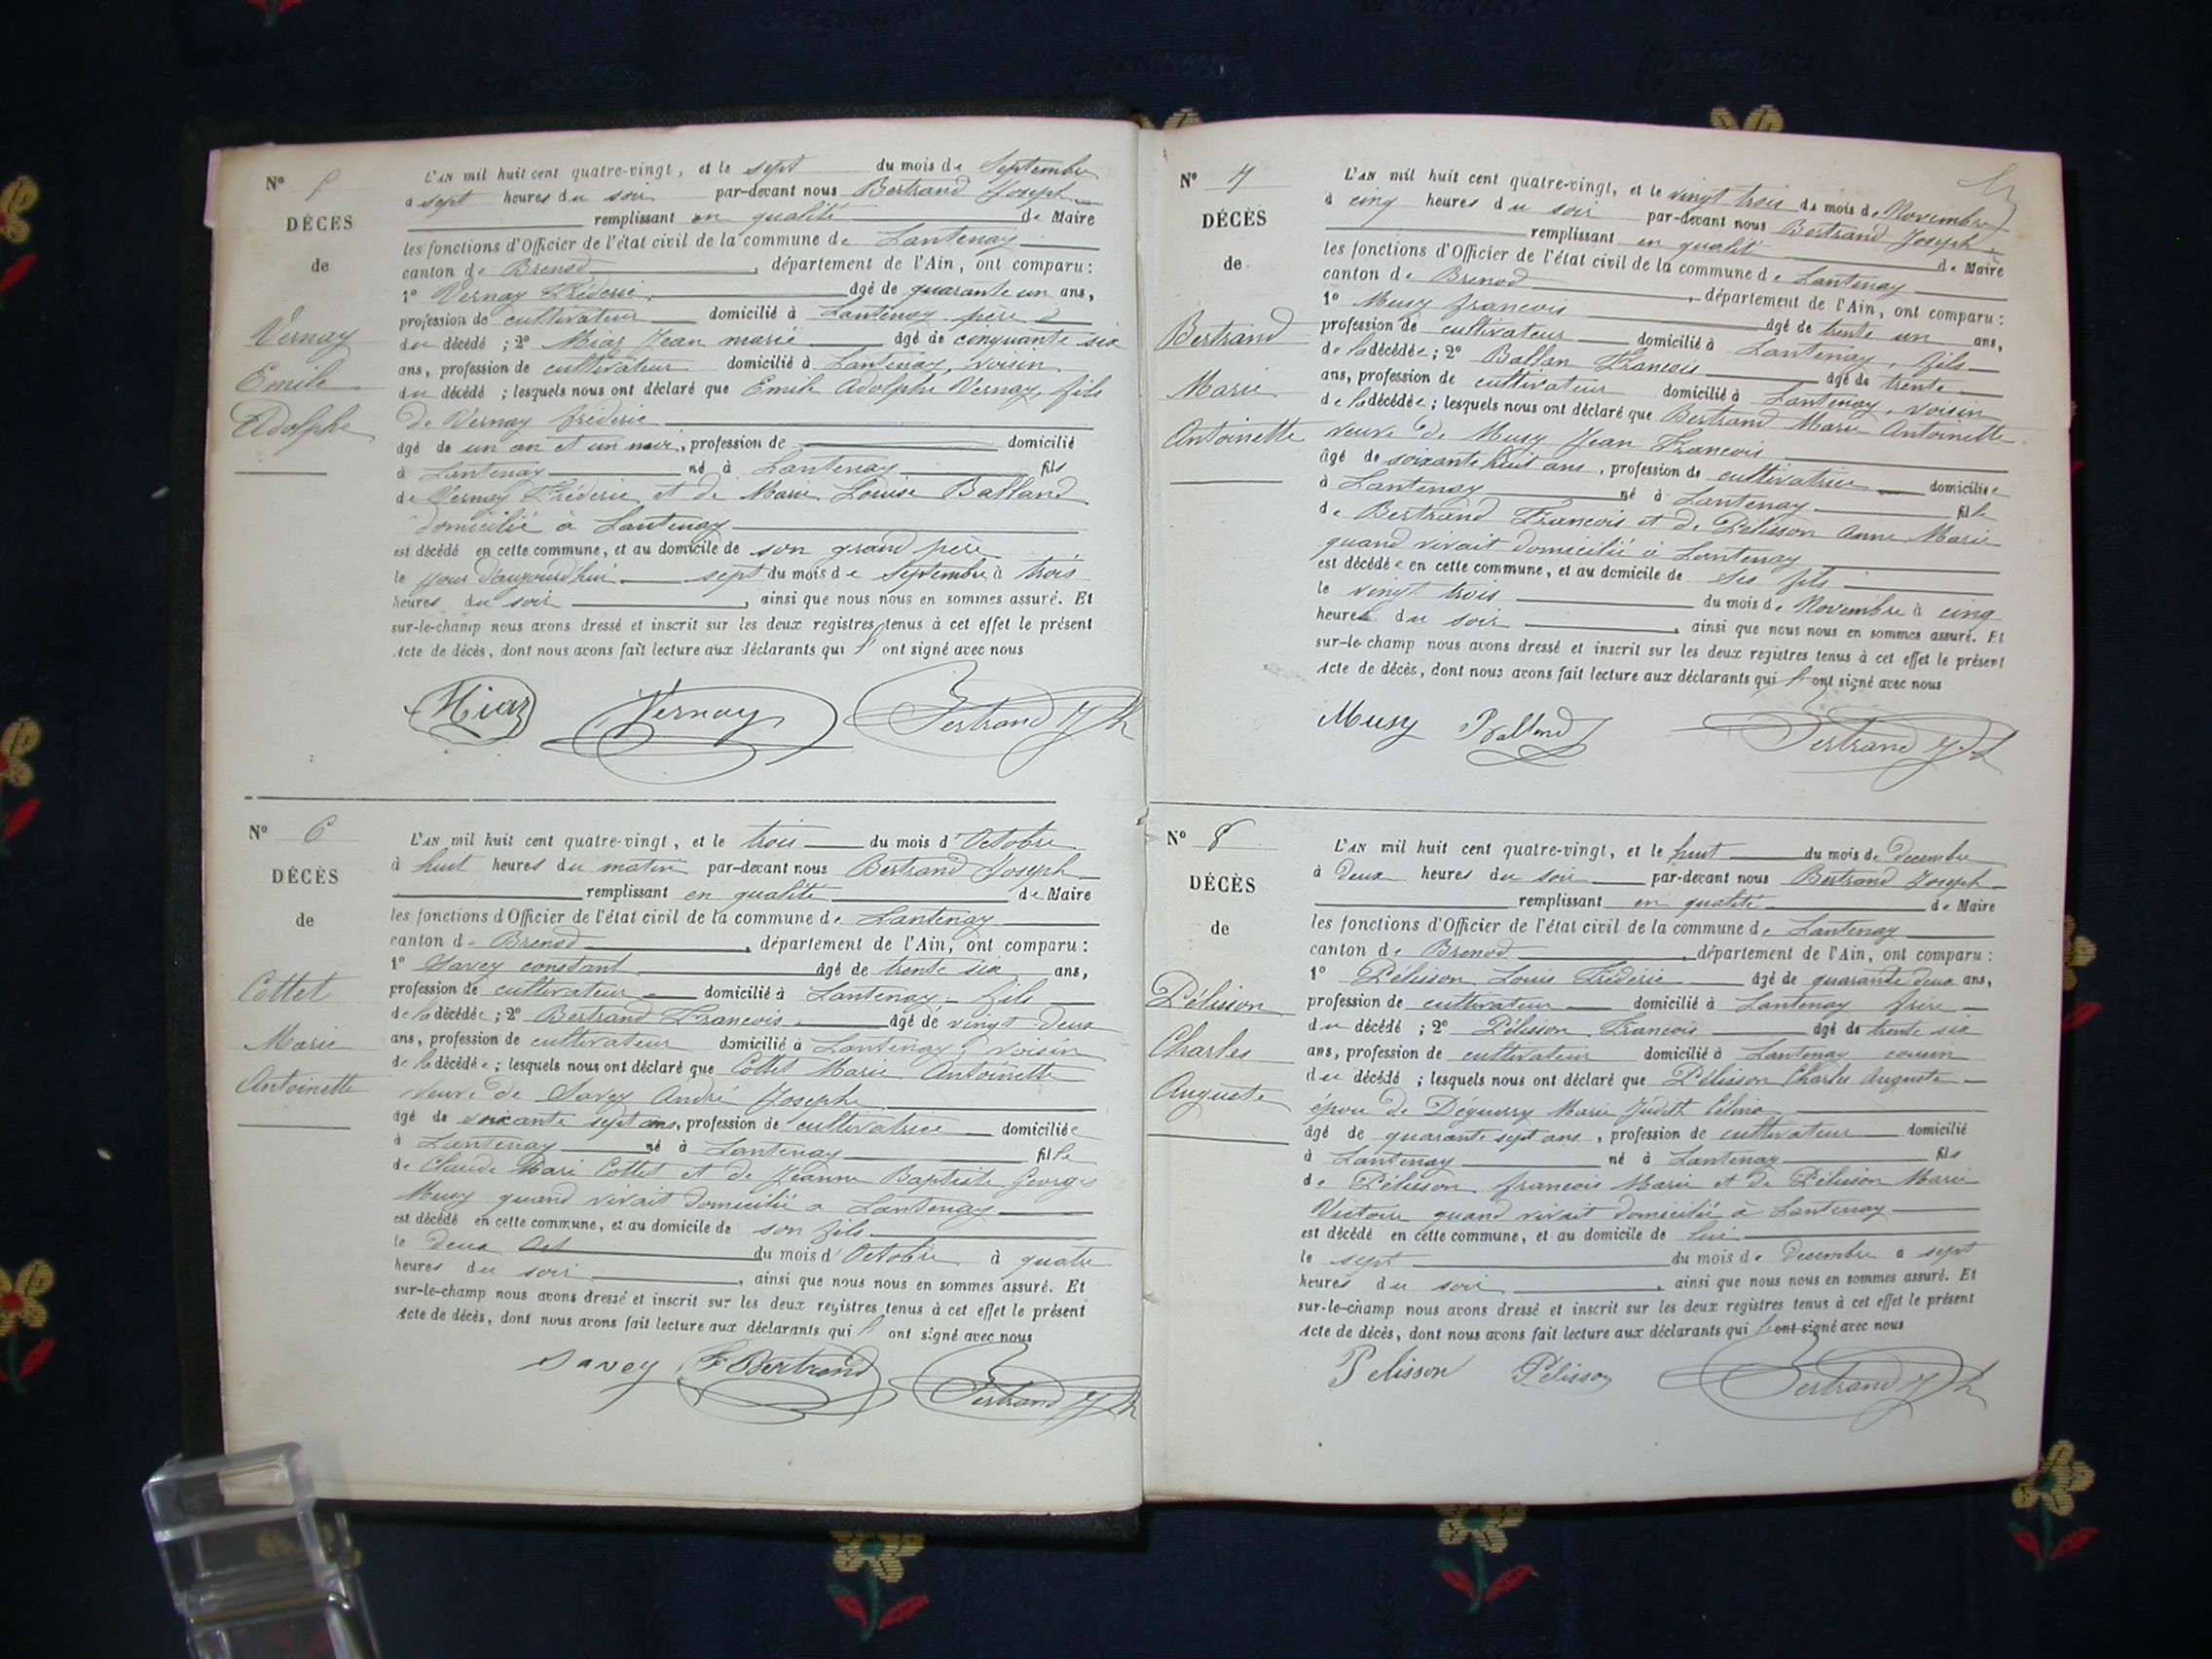 Nº 5
DÉCES
de
Vernay
Emile
Adolphe
L'AN mil huit cent quatre-vingt, et le sept du mois de Septembre
à sept heures du soir par-devant nous Bertrand Joseph
remplissant en qualité de Maire
les fonctions d'Officier de l'état civil de la commune de Lantenay
canton de Brenod, département de l'Ain, ont comparu:
1º Vernay Fréderic, âgé de quarante un ans,
profession de cultivateur domicilié à Lantenay père d
du décédé; 2º Miaz Jean marie âgé de cinquante six
ans, profession de cultivateur domicilié à Lantenay, voisin
du décédé; lesquels nous ont déclaré que Emile Adolphe Vernay, fils
de Vernay fréderic
âgé de un an et un mois, profession de domicilié
à Lantenay né à Lantenay fils
de Vernay Fréderic et de Marie Louise Balland
domicilié à Lantenay
est décédé en cette commune, et au domicile de son grand père
le jour d'aujourd'hui sept du mois de Septembre à trois
heures du soir, ainsi que nous nous en sommes assuré. Et
sur-le-champ nous avons dressé et inscrit sur les deux registres tenus à cet effet le présent
Acte de décès, dont nous avons fait lecture aux déclarants qui ont signé avec nous
Miaz Vernay Bertrand Jph
Nº 6
DÉCÈS
de
Cottet
Marie
Antoinette
L'AN mil huit cent quatre-vingt, et le trois du mois d'Octobre
à huit heures du matin par-devant nous Bertrand Joseph
remplissant en qualité de Maire
les fonctions d'Officier de l'état civil de la commune de Lantenay
canton de Brenod, département de l'Ain, ont comparu:
1º Savey constant âgé de trente six ans,
profession de cultivateur domicilié à Lantenay fils
de la décédée; 2º Bertrand Francois âgé de vingt deux
ans, profession de cultivateur domicilié à Lantenay, voisin
de la décédée; lesquels nous ont déclaré que Cottet Marie Antoinette
veuve de Savey André Josephe
âgé de soixante sept ans, profession de cultivatrice domiciliée
à Lantenay né à Lantenay fille
de Claude Mari Cottet et de Jeanne Baptiste Georges
Musy quand vivait domicilié a Lantenay
est décédé en cette commune, et au domicile de son fils
le deux Oct du mois d'Octobre à quatre
heures du soir, ainsi que nous nous en sommes assuré. Et
sur-le-champ nous avons dressé et inscrit sur les deux registres tenus à cet effet le présent
Acte de décès, dont nous avons fait lecture aux déclarants qui ont signé avec nous
Savey F Bertrand Bertrand Jph
Nº 7
DÉCÈS
de
Bertrand
Marie
Antoinette
L'AN mil huit cent quatre-vingt, et le vingt trois du mois de Novembre
à cinq heures du soir par-devant nous Bertrand Joseph
remplissant en qualité de Maire
les fonctions d'Officier de l'état civil de la commune de Lantenay
canton de Brenod, département de l'Ain, ont comparu:
1º Musy francois âgé de trente un ans,
profession de cultivateur domicilié à Lantenay, fils
de la décédée; 2º Ballan Francois âgé de trente
ans, profession de cultivateur domicilié à Lantenay, voisin
de la décédée; lesquels nous ont déclaré que Bertrand Marie Antoinette
veuve de Musy Jean Francois
âgé de soixante huit ans, profession de cultivatrice domiciliée
à Lantenay né à Lantenay fille
de Bertrand Francois et de Pelisson Anne Marie
quand vivait domicilié à Lantenay
est décédée en cette commune, et au domicile de ses fils
le vingt trois du mois de Novembre à cinq
heures du soir, ainsi que nous nous en sommes assuré. Et
sur-le-champ nous avons dressé et inscrit sur les deux registres tenus à cet effet le présent
Acte de décès, dont nous avons fait lecture aux déclarants qui ont signé avec nous
Musy Balland Bertrand Jph
Nº 8
DÉCÈS
de
Pélisson
Charles
Auguste
L'AN mil huit cent quatre-vingt, et le huit du mois de Decembre
à deux heures du soir par-devant nous Bertrand Joseph
remplissant en qualité de Maire
les fonctions d'Officier de l'état civil de la commune de Lantenay
canton de Brenod, département de l'Ain, ont comparu:
1º Pélisson Louis Fréderic âgé de quarante deux ans,
profession de cultivateur domicilié à Lantenay frère
du décédé; 2º Pélisson Francois âgé de trente six
ans, profession de cultivateur domicilié à Lantenay cousin
du décédé; lesquels nous ont déclaré que Pélisson Charles Auguste
épou de Déguerry Marie Judith Célina
âgé de quarante sept ans, profession de cultivateur domicilié
à Lantenay né à Lantenay fils
de Pélisson francois Marie et de Pélisson Marie
Victoire quand vivait domicilié à Lantenay
est décédé en cette commune, et au domicile de lui
le sept du mois de Decembre à sept
heures du soir, ainsi que nous nous en sommes assuré. Et
sur-le-champ nous avons dressé et inscrit sur les deux registres tenus à cet effet le présent
Acte de décès, dont nous avons fait lecture aux déclarants qui ont signé avec nous
Pelisson Pélisson Bertrand Jph